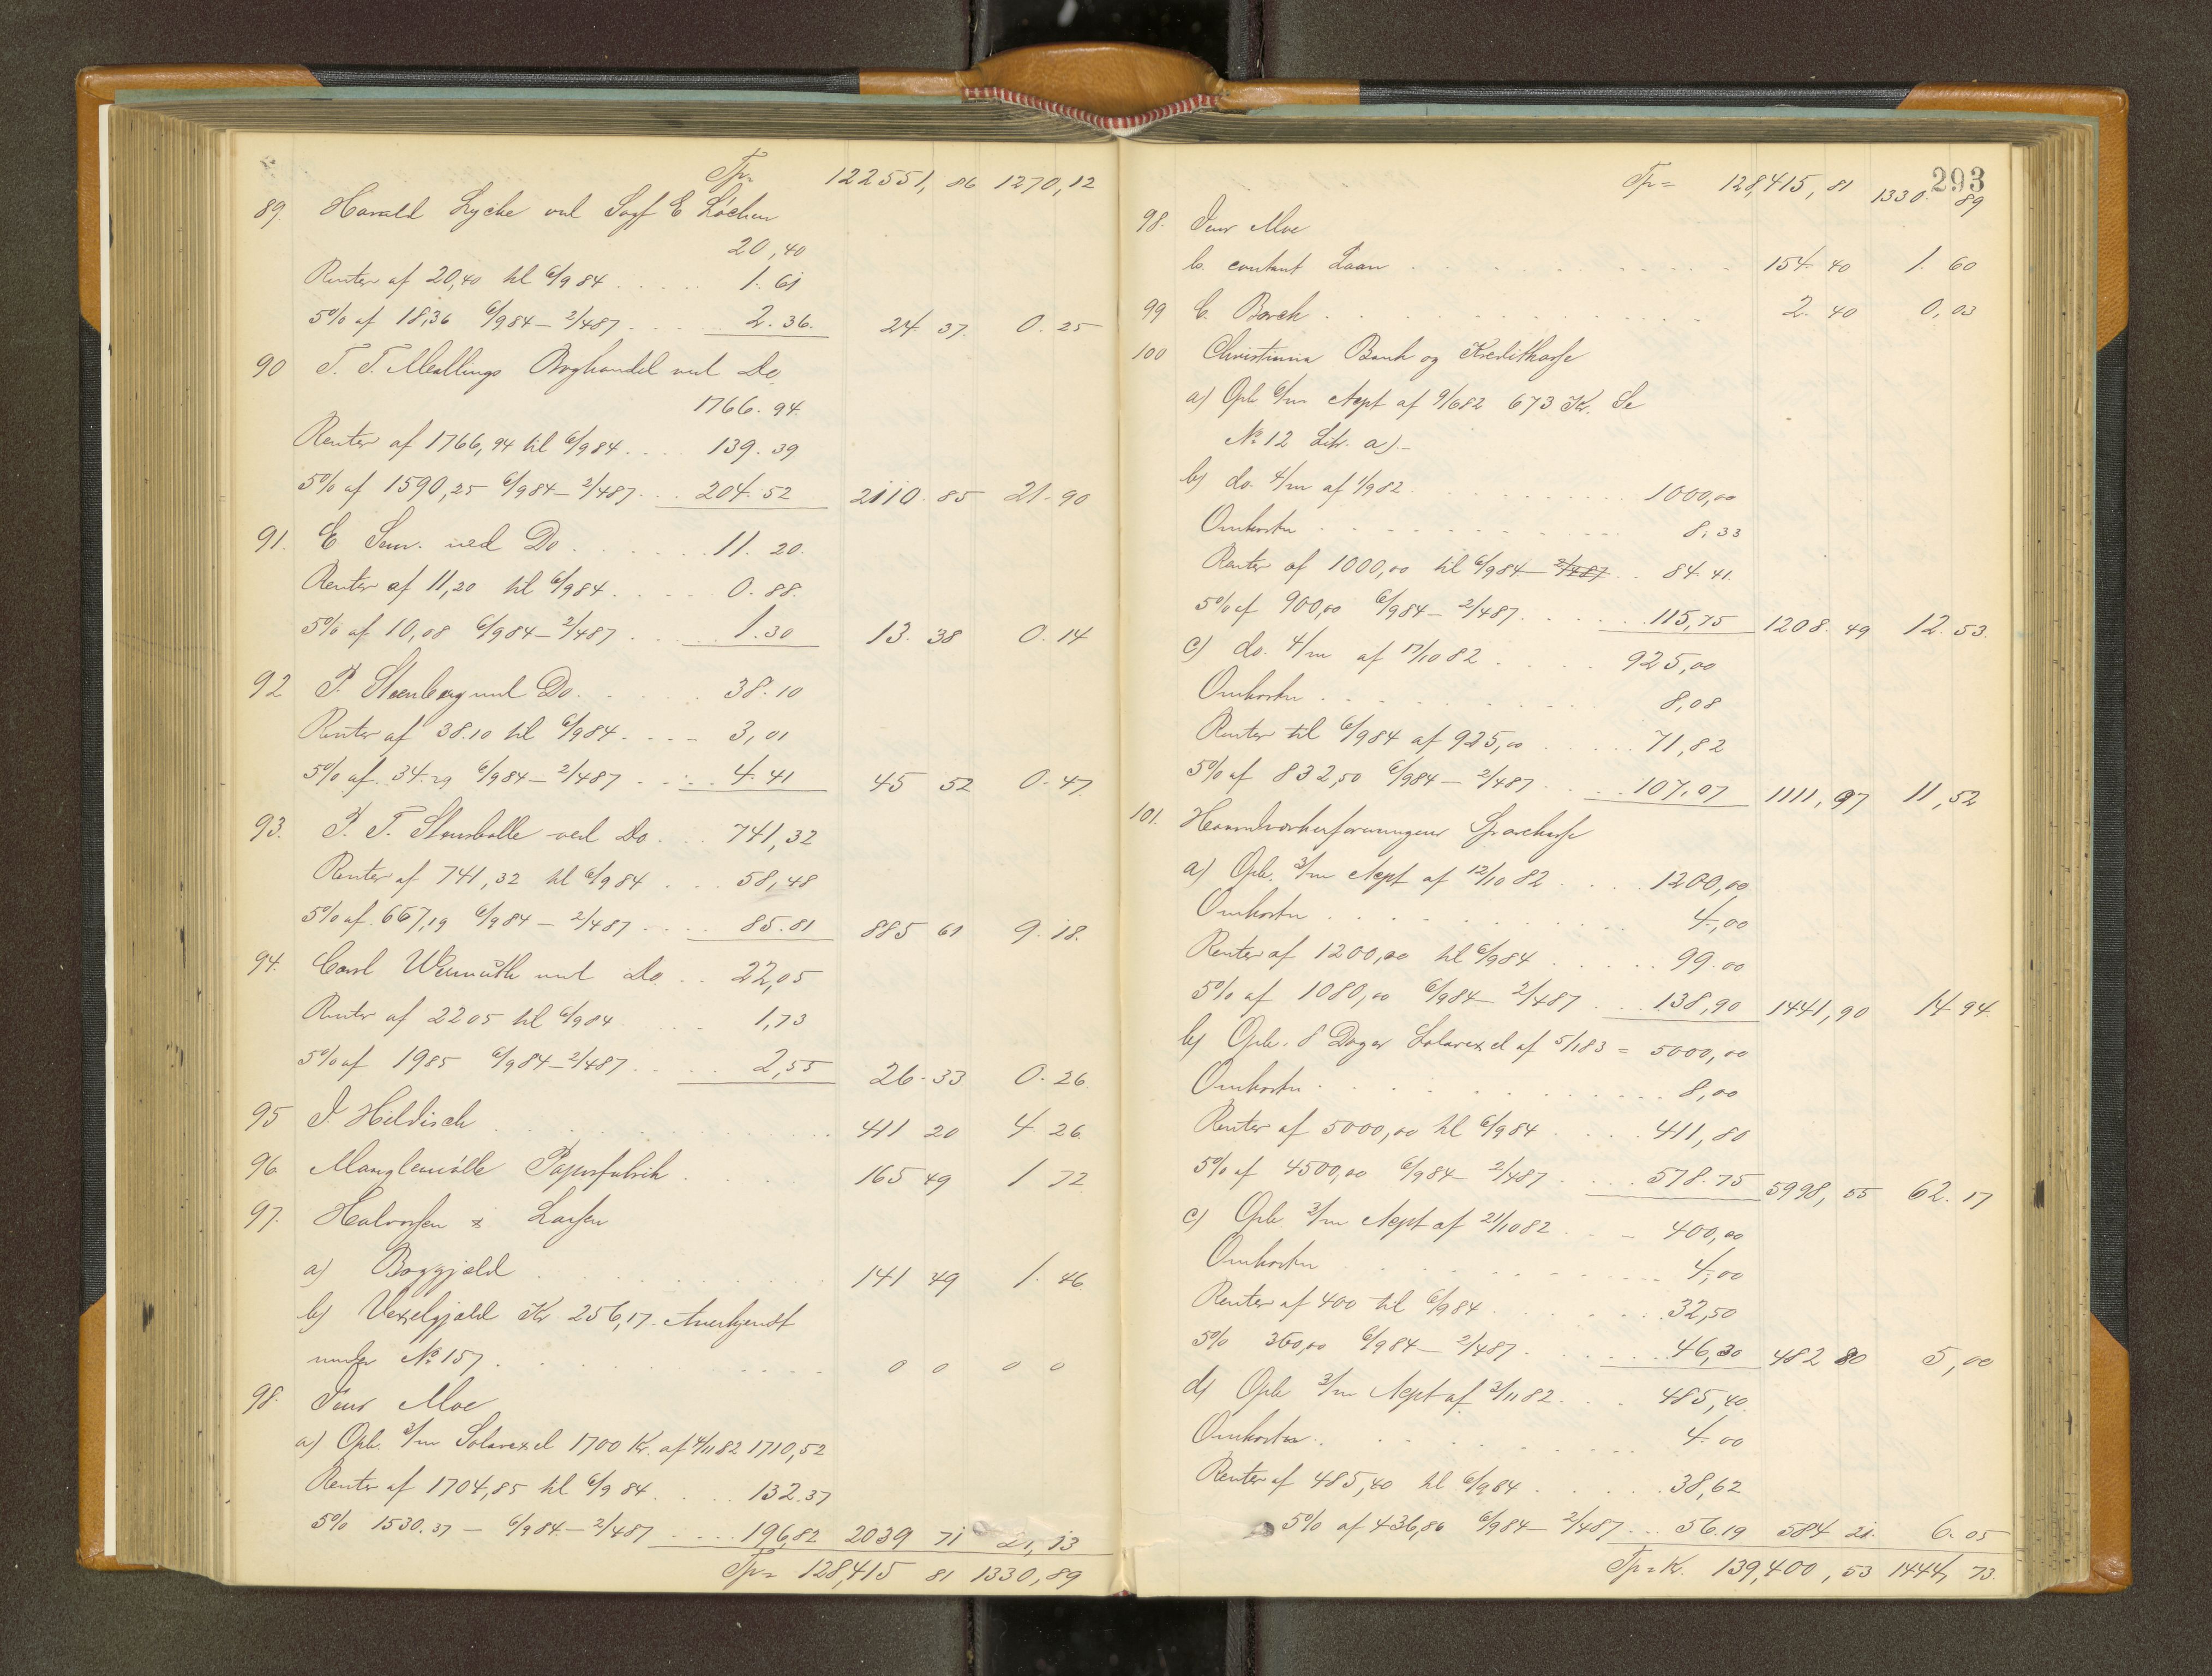 Tp= 122551,86 1270,12
89. Harald Lyche ved Sagf E Löchen
20,40
Renter af 20,40 til 6/9 84 1.61
5% af 18,36 6/9 84 – 2/4 87 2.36. 24 37. 0.25
90 F. T. Mallings Boghandel ved Do
1766.94.
Renter af 1766,94 til 6/9 84 139.39
5% af 1590,25 6/9 84 – 2/4 87 204.52 2110.85 21.90
91. E Sem. ved Do 11.20.
Renter af 11,20 til 6/9 84 0.88.
5% af 10,08 6/9 84 – 2/4 87 1.30 13.38 0.14
92 P. Steenberg ved Do. 38.10
Renter af 38.10 til 6/9 84 3,01
5% af 34.29 6/9 84 – 2/4 87 4.41 45 52 0.47.
93. P. T. ved Do 741,32
Renter af 741,32 til 6/9 84 58,48
5% af 667,19 6/9 84 – 2/4 87 85.81 885 61 9.18.
94. Carl Warmuth ved Do 22,05
Renter af 2205 til 6/9 84 1,73
5% af 1985 6/9 84 – 2/4 87 2,55 26.33 0.26.
95 J. Hildisch 411 20 4.26.
96 Manglemölle Papirfabrik 165 49 1 72
97. Halvorsen & Larsen
a) Boggjæld 141 49 1.46.
b) Vexelgjæld Kr 256,17. Anerkjendt
under No 157 0 0 0 0
98. Jens Moe
a) Opb. 3/m Solavexel 1700 Kr. af 4/11 82 1710,52
Renter af 1704,85 til 6/9 84 132.37
5% 1530.37 – 6/9 84 – 2/4 87 196,82 2039 71 21,13
Tp= 128,415 81 1330,89
293
Tp= 128,415,81 1330 89
98. Jens Moe
b. contant Laan 154.40 1.60
99 C. Borch 2.40 0,03
100 Christiania Bank og Kreditkasse
a) Opb 6/m Acpt af 9/6 82 673 Kr. Se
No 12 Litr. a).–
b) do. 4/m af 1/9 82 1000,00
Omkostn 8,33
Renter af 1000,00 til 6/9 84 – 2/4 87 84.41.
5% af 900,00 6/9 84 – 2/4 87 115,75 1208.49 12.53.
c) do. 4/m af 17/10 82 925,00
Omkostn 8,08
Renter til 6/9 84 af 925,00 71,82
5% af 832,50 6/9 84 – 2/4 87 107,07 1111,97 11,52
101. Haandværkerforeningens Sparekasse
a) Opb. 3/m Acpt af 12/10 82 1200,00
Omkostn 4,00
Renter af 1200,00 til 6/9 84 99.00
5% af 1080,00 6/9 84 – 2/4 87 138,90 1441,90 14.94.
b) Opb. 8 Dages Solavexel af 5/1 83 = 5000,00
Omkostn 8,00
Renter af 5000,00 til 6/9 84 411,80
5% af 4500,00 6/9 84 – 2/4 87 578.75 5998,55 62.17
c) Opb 3/m Acpt af 21/10 82 400,00
Omkostn 4,00
Renter af 400 til 6/9 84 32,50
5% 360,00 6/9 84 – 2/4 87 46,30 482 80 5,00
d) Opb 3/m Acpt af 2/11 82 485,40.
Omkostn. 4.00
Renter af 485,40 til 6/9 84 38,62
5% af 436,86 6/9 84 – 2/4 87 56.19 584 21. 6.05
Tp=Kr. 139,400,53 1444,73.